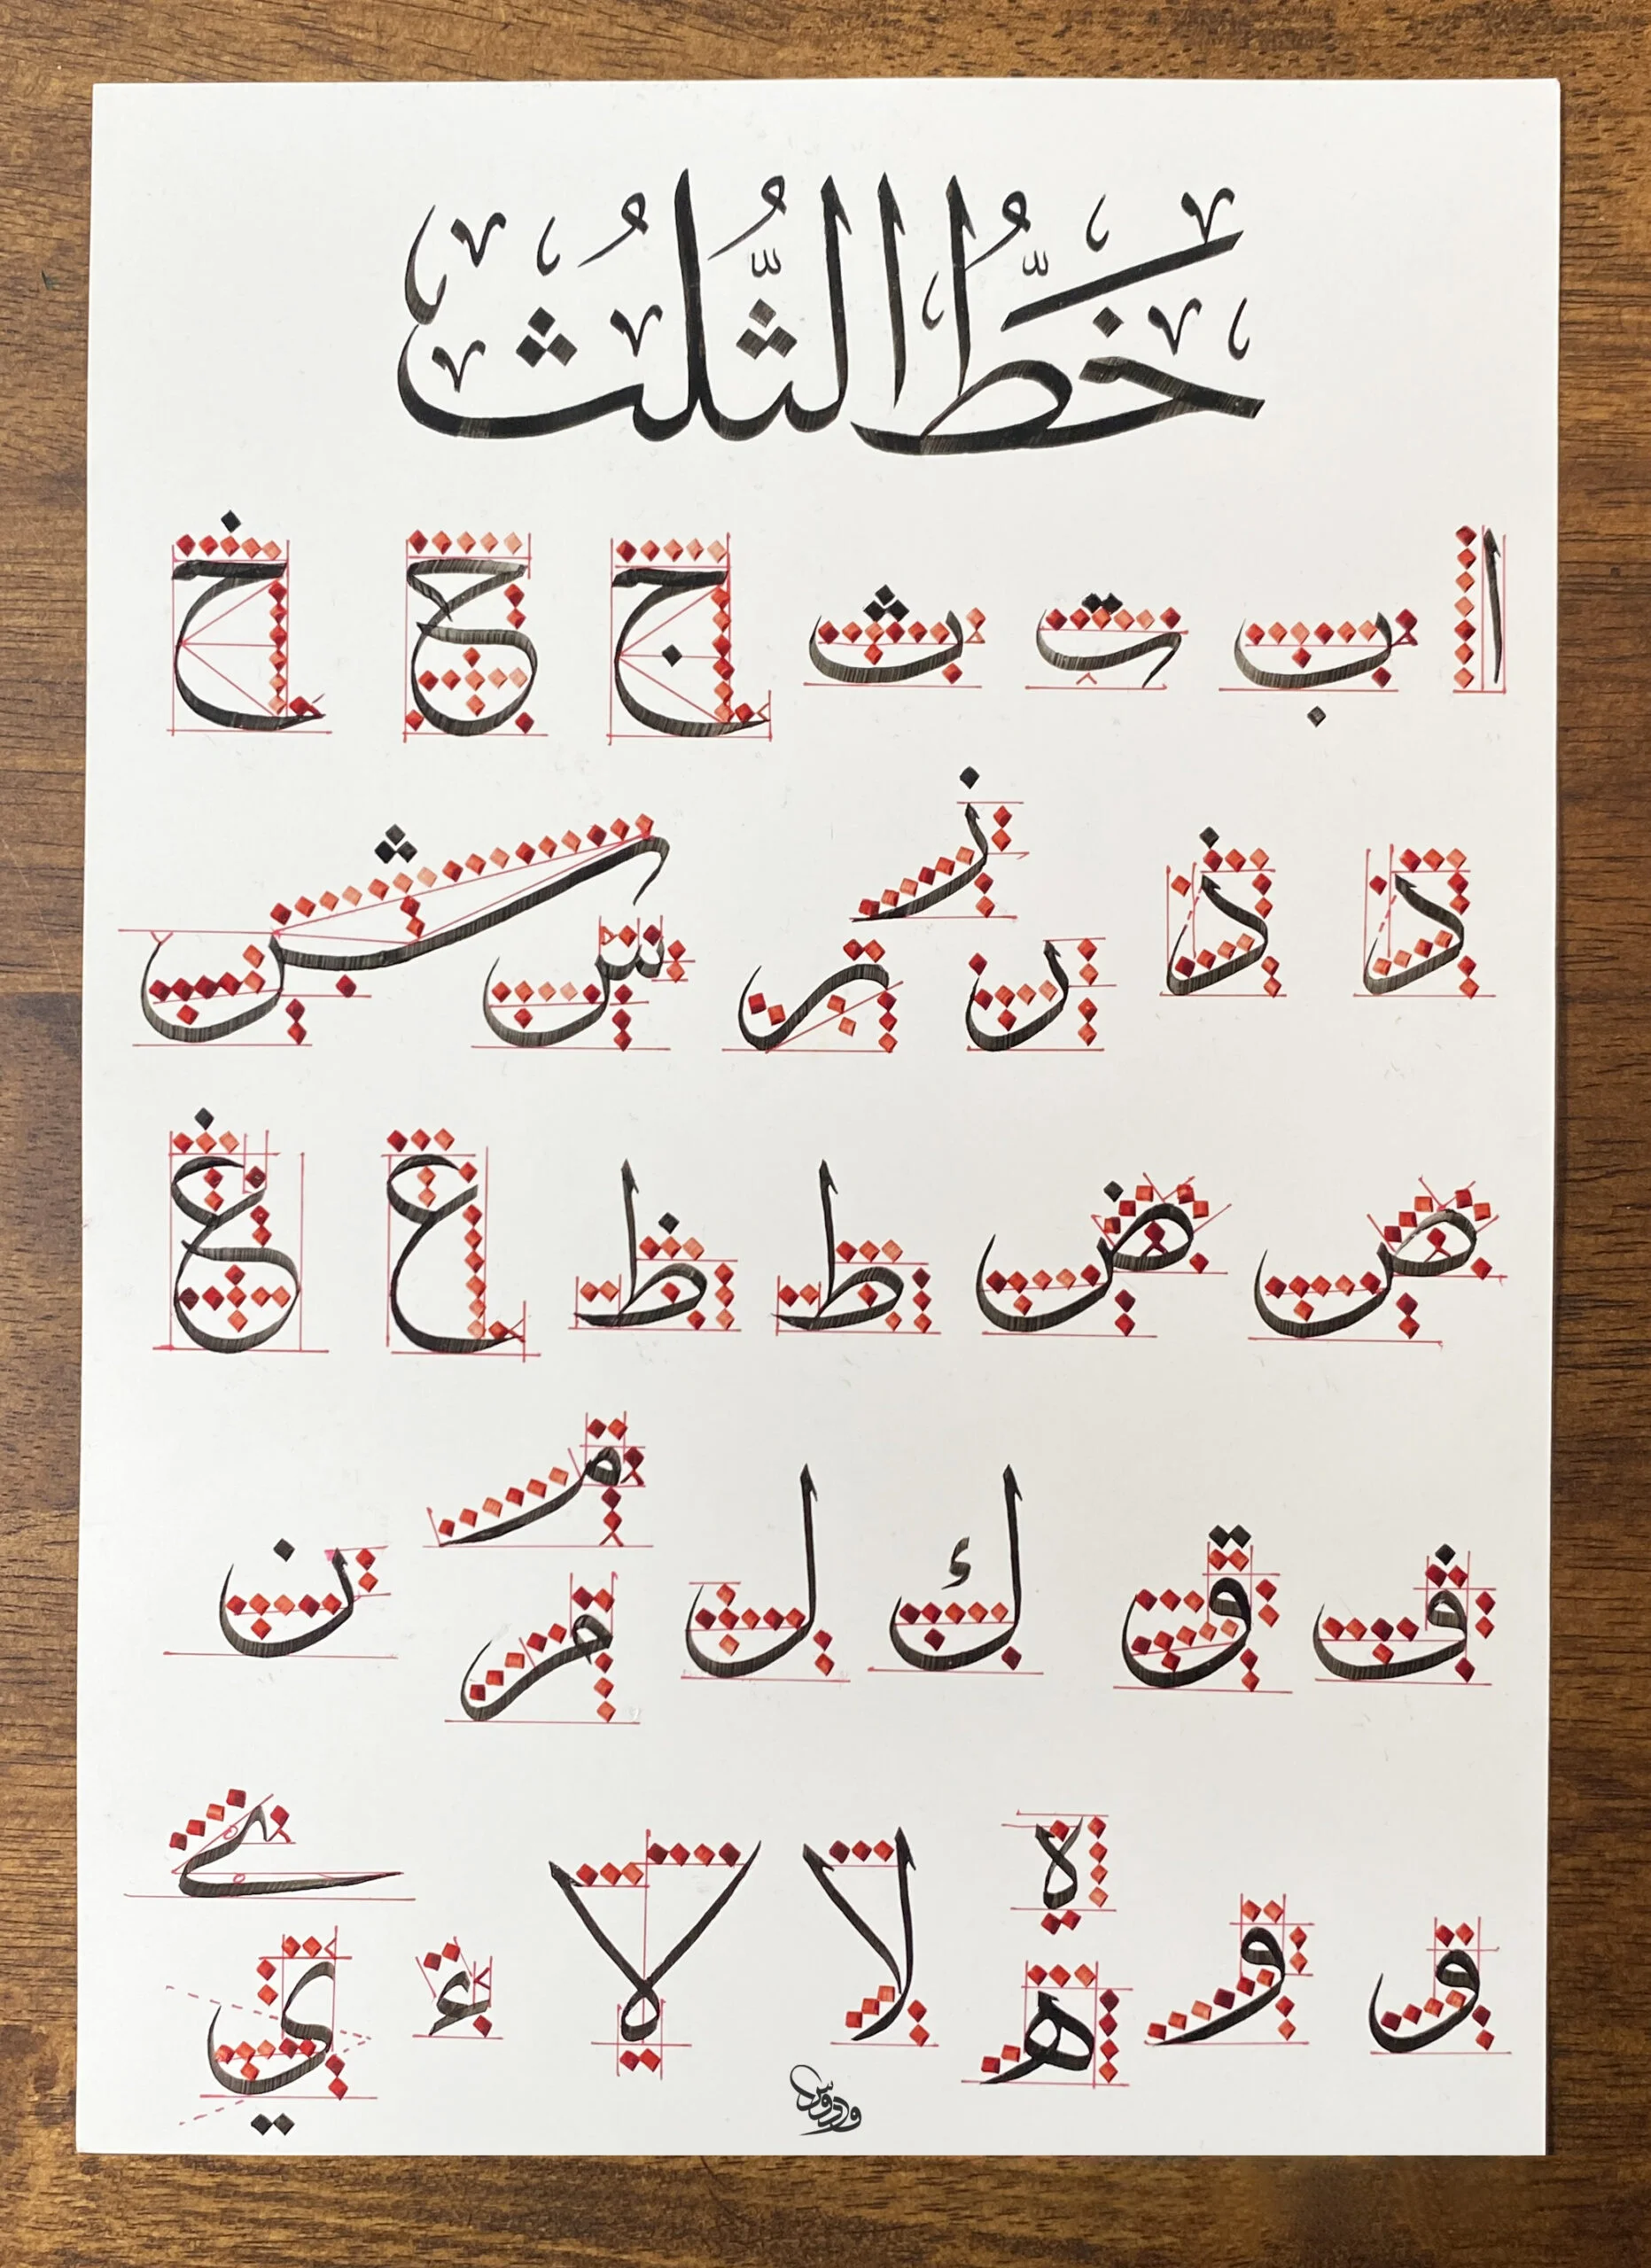 خَطُّ الثُّلُث
ا ب ت ث ج ح خ
د ذ ز ر ر س ش
ص ض ط ظ ع غ
ف ق ك ل م م ن
و و ه ه لا لا ء ي ي